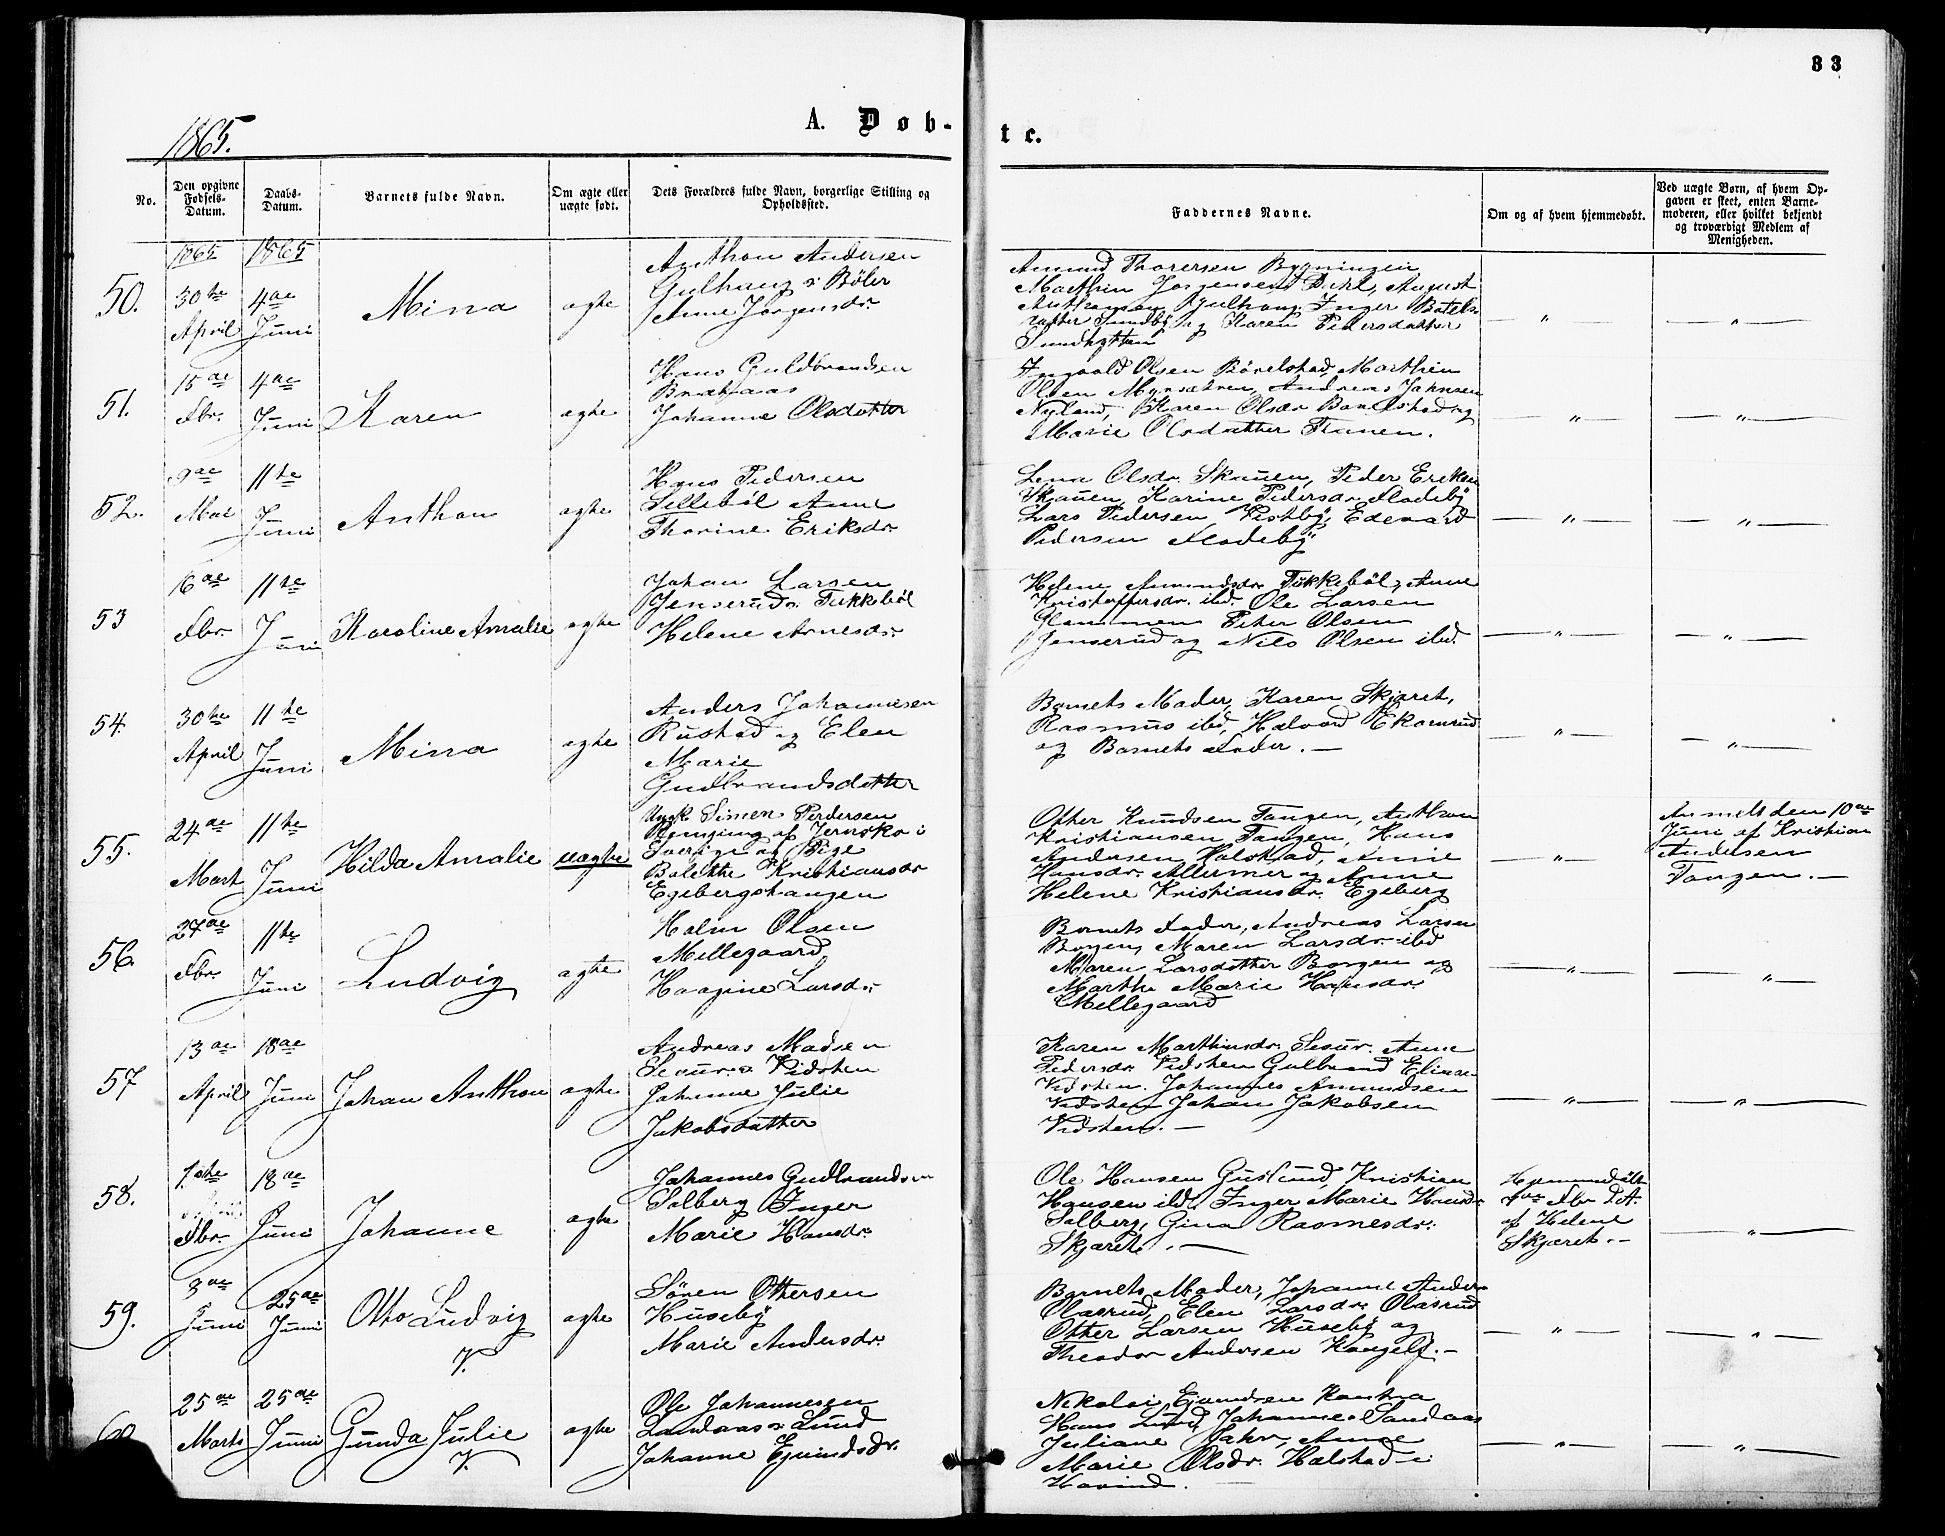 83
A. Døb-
te.
1865.
No.
Den opgivne Fødsels-Datum.
Daabs-Datum.
Barnets fulde Navn.
Om ægte eller uægte født.
Dets Forældres fulde Navn, borgerlige Stilling og Opholdssted.
Faddernes Navne.
Om og af hvem hjemmedøbt.
Ved uægte Børn, af hvem Op-
gaven er skeet, enten Barne-
moderen, eller hvilket bekjendt
og troværdigt Medlem af
Menigheden.
1865 1865
50.
30te April
4de Juni
Mina
ægte
Anthon Andersen
Gulhaug v: Böler
Anne Jörgensdr.
Amund Thorersen Bygningen
Marthin Jörgensen Dahl, August
Gulhaug, Inger
Sundby og Karen Pedersdatter
51.
15de Fbr.
4de Juni
Karen
ægte
Hans Guldbrandsen
Braataas
Johanne Olsdatter
Ingvald Olsen Bövelstad, Marthin
Olsen Myrsætren, Andreas Johnsen
Nyland, Karen Olsdr
Marie Olsdatter
52.
9de Mai
11te Juni
Anthon
ægte
Hans Pedersen
Sillebøl Anne
Thorine Eriksdr.
Lena Olsdr. Skauen, Peder Eriksen
Skauen, Karine Pedersdr. Fladeby
Lars Pedersen, Vestby, Edevard
Pedersen Fladeby
53
16de Fbr.
11te Juni
Karoline Amalie
ægte
Johan Larsen
Jenserud v. Tukkebøl
Helene Arnesdr.
Helene Amundsdr. Tukkebøl, Anne
Kristoffersdr. ibd. Ole Larsen
Glemmen Peter Olsen
Jenserud og Nils Olsen ibd.
54.
30te April
11te Juni
Mina
ægte
Anders Johannesen
Rustad og Elen
Marie
Gudbrandsdatter
Barnets Moder, Karen Skjæret,
Rasmus ibd, Halvord Ekornrud
og Barnets Fader. —
55.
24de Mart
11te Juni
Hilda Amalie
uægte
Ungk. Simen Pedersen
af Jernsko i
Sverige og Pige
Bolette Kristiansdr
Egebergshangen
Otter Knudsen Tangen, Anthon
Kristiansen Tangen, Hans
Andersen Halstad, Anne
Hansdr. Allermer og Anne
Helene Kristiansdr. Egeberg
Anmeldt den 10de
Juni af Kristian
Andersen
Tangen. —
56.
27de Fbr.
11te Juni
Ludvig
ægte
Holm Olsen
Mellegaard,
Haagine Larsdr.
Barnets Fader, Andreas Larsen
Borgen, Maren Larsdr. ibd
Maren Larsdatter Borgen og
Marthe Marie Hansdr.
Mellegaard
57
13de April
18de Juni
Johan Anthon
ægte
Andreas Madsen
v Vidsten
Johanne Julie
Jakobsdatter
Karen Marthinsdr. Anne
Pedersdr. Vidsten Gulbrand
Vidsten. Johannes Amundsen
Vidsten Johan Jakobsen
Vidsten. —
58.
1ste Fbr.
18de Juni
Johanne
ægte
Johannes Gudbrandsen
Solberg Inger
Marie Hansdr.
Ole Hansen Guslund, Kristian
Hansen ibd, Inger Marie Hansdr.
Solberg, Gina Rasmesdr.
Skjæret. —
Fbr. d.A.
af Helene
Skjæret. —
59.
3de Juni
25de Juni
Otto Ludvig
V.
ægte
Sören Ottersen
Huseby
Marie Andersdr.
Barnets Moder, Johanne Anders
Olasrud, Elen Larsdr. Olasrud
Otter Larsen Huseby og
Theodor Andersen —
60
25de Marts
25de Juni
Gunda Julie
V.
ægte
Ole Johannesen
Sandaas v: Lund
Johanne Ejvindsdr.
Nikolai Ejvindsen
Hans Lund, Johanne Sandaas
Juliane Anne
Marie Olsdr. Halstad i